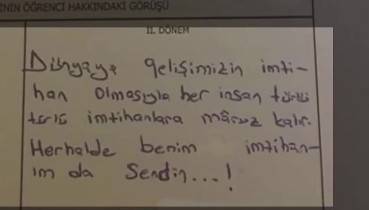 ININ ÖĞRENCİ HAKKINDAKİ GÖRÜŞÜ
II. DÖNEM
Dünyaya gelişimizin imti-
han olmasıyla her insan türlü
türlü imtihanlara mâruz kalır.
Herhalde benim imtihan-
ım da Sendin...!